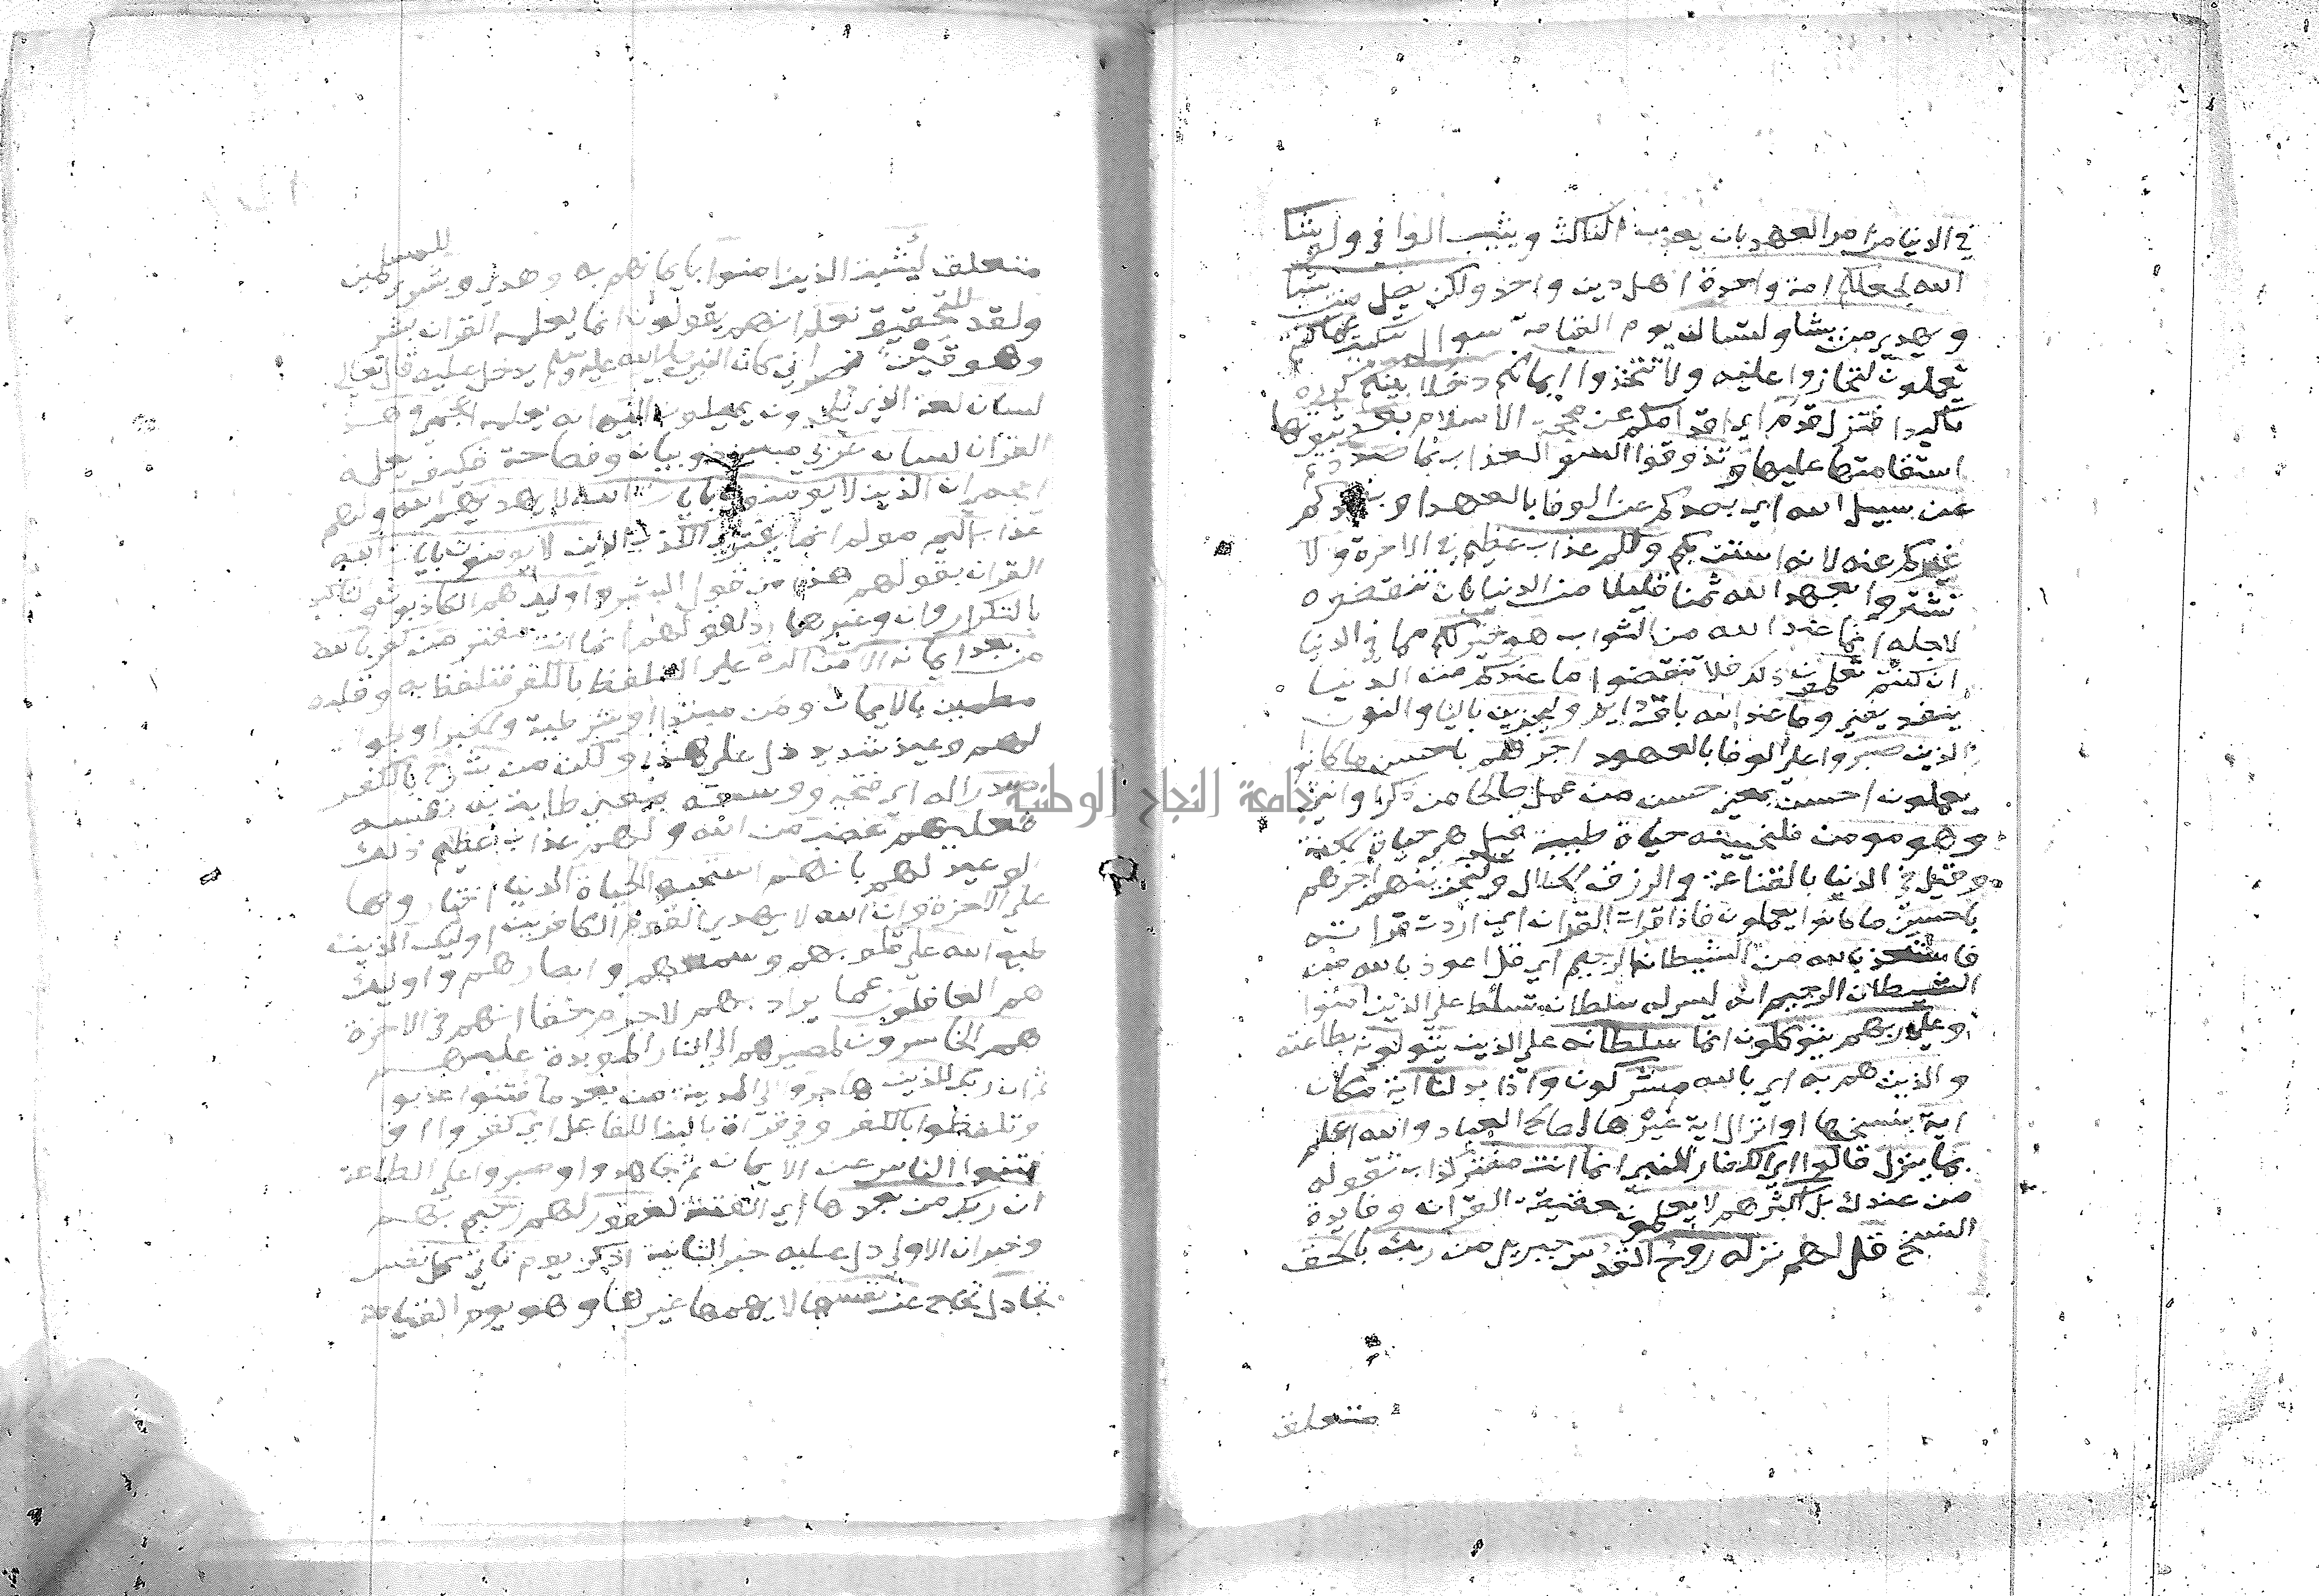 في الدنيا من امر العهد بان يعذب الناكث ويثيب الوافي ولو شا
الله لجعلكم امة واحدة اهل دين واحد ولكن يضل من يشا
ويهدي من يشا ولتسالن يوم القيامة سوال تبكيت عما كنتم
تعملون لتجازوا عليه ولا تتخذوا ايمانكم دخلا بينكم كرره
تاكيدا فتزل قدم اي اقدامكم عن محجة الاسلام بعد ثبوتها
استقامتها عليها وتذوقوا السو العذاب بما صددتم
عن سبيل الله اي بصدكم عن الوفا بالعهد او بصدكم
غيركم عنه لانه استن بكم ولكم عذاب عظيم في الاخرة ولا
تشتروا بعهد الله ثمنا قليلا من الدنيا بان تنقضوه
لاجله انما عند الله من الثواب هو خير لكم مما في الدنيا
ان كنتم تعلمون ذلك فلا تنقضوا ما عندكم من الدنيا
ينفد يفنى وما عند الله باق دايم وليجزين باليا والنون
الذين صبروا على الوفا بالعهود اجرهم باحسن ما كانوا
يعملون احسن بمعنى حسن من عمل صالحا من ذكر او انثى
وهو مومن فلنحيينه حياة طيبة قيل هي حياة الجنة
وقيل في الدنيا بالقناعة والرزق الحلال ولنجزينهم اجرهم
باحسن ما كانوا يعملون فاذا قرات القران اي اردت قراته
فاستعذ بالله من الشيطان الرجيم اي قل اعوذ بالله من
الشيطان الرجيم انه ليس له سلطان تسلط على الذين امنوا
وعلى ربهم يتوكلون انما سلطانه على الذين يتولونه بطاعته
والذين هم به اي بالله مشركون واذا بدلنا اية مكان
اية بنسخها او انزال اية غيرها لمصالح العباد والله اعلم
بما ينزل قالوا اي الكفار للنبي انما انت مفتر كذاب تقوله
من عندك بل اكثرهم لا يعلمون حقيقة القران وفايدة
النسخ قل لهم نزله روح القدس جبريل من ربك بالحق
متعلق
متعلق ليثبت الذين امنوا بايمانهم به وهدى وبشرى للمسلمين
ولقد للتحقيق نعلم انهم يقولون انما يعلمه القران بشر
وهو قين نصراني كان النبي صلى الله عليه وسلم يدخل عليه قال تعالى
لسان لغة الذي يلحدون يميلون اليه انه يعلمه اعجمي وهذا
القران لسان عربي مبين ذو بيان وفصاحة فكيف يعلمه
اعجمي ان الذين لا يومنون بايات الله لا يهديهم الله ولهم
عذاب اليم مولم انما يفتري الكذب الذين لا يومنون بايات الله
القران بقولهم هذا من قول البشر واوليك هم الكاذبون والتاكيد
بالتكرار وان وغيرهما رد لقولهم انما انت مفتر من كفر بالله
من بعد ايمانه الا من اكره على التلفظ بالكفر فتلفظ به وقلبه
مطمين بالايمان ومن مبتدا او شرطية والخبر او الجواب
لهم وعيد شديد دل على هذا ولكن من شرح بالكفر
صدرا له اي فتحه ووسعه بمعنى طابت به نفسه
فعليهم غضب من الله ولهم عذاب عظيم ذلك
الوعيد لهم بانهم استحبوا الحياة الدنيا اختاروها
على الاخرة وان الله لا يهدي القوم الكافرين اوليك الذين
طبع الله على قلوبهم وسمعهم وابصارهم واوليك
هم الغافلون عما يراد بهم لا جرم حقا انهم في الاخرة
هم الخاسرون لمصيرهم الى النار الموبدة عليهم
ثم ان ربك للذين هاجروا الى المدينة من بعد ما فتنوا عذبوا
وتلفظوا بالكفر وفي قراة بالبنا للفاعل اي كفروا او
فتنوا الناس عن الايمان ثم جاهدوا وصبروا على الطاعة
ان ربك من بعدها اي الفتنة لغفور لهم رحيم بهم
وخبر ان الاولى دل عليه خبر الثانية اذكر يوم تاتي كل نفس
تجادل تحاج عن نفسها لا يهمها غيرها وهو يوم القيامة
جامعة النجاح الوطنية